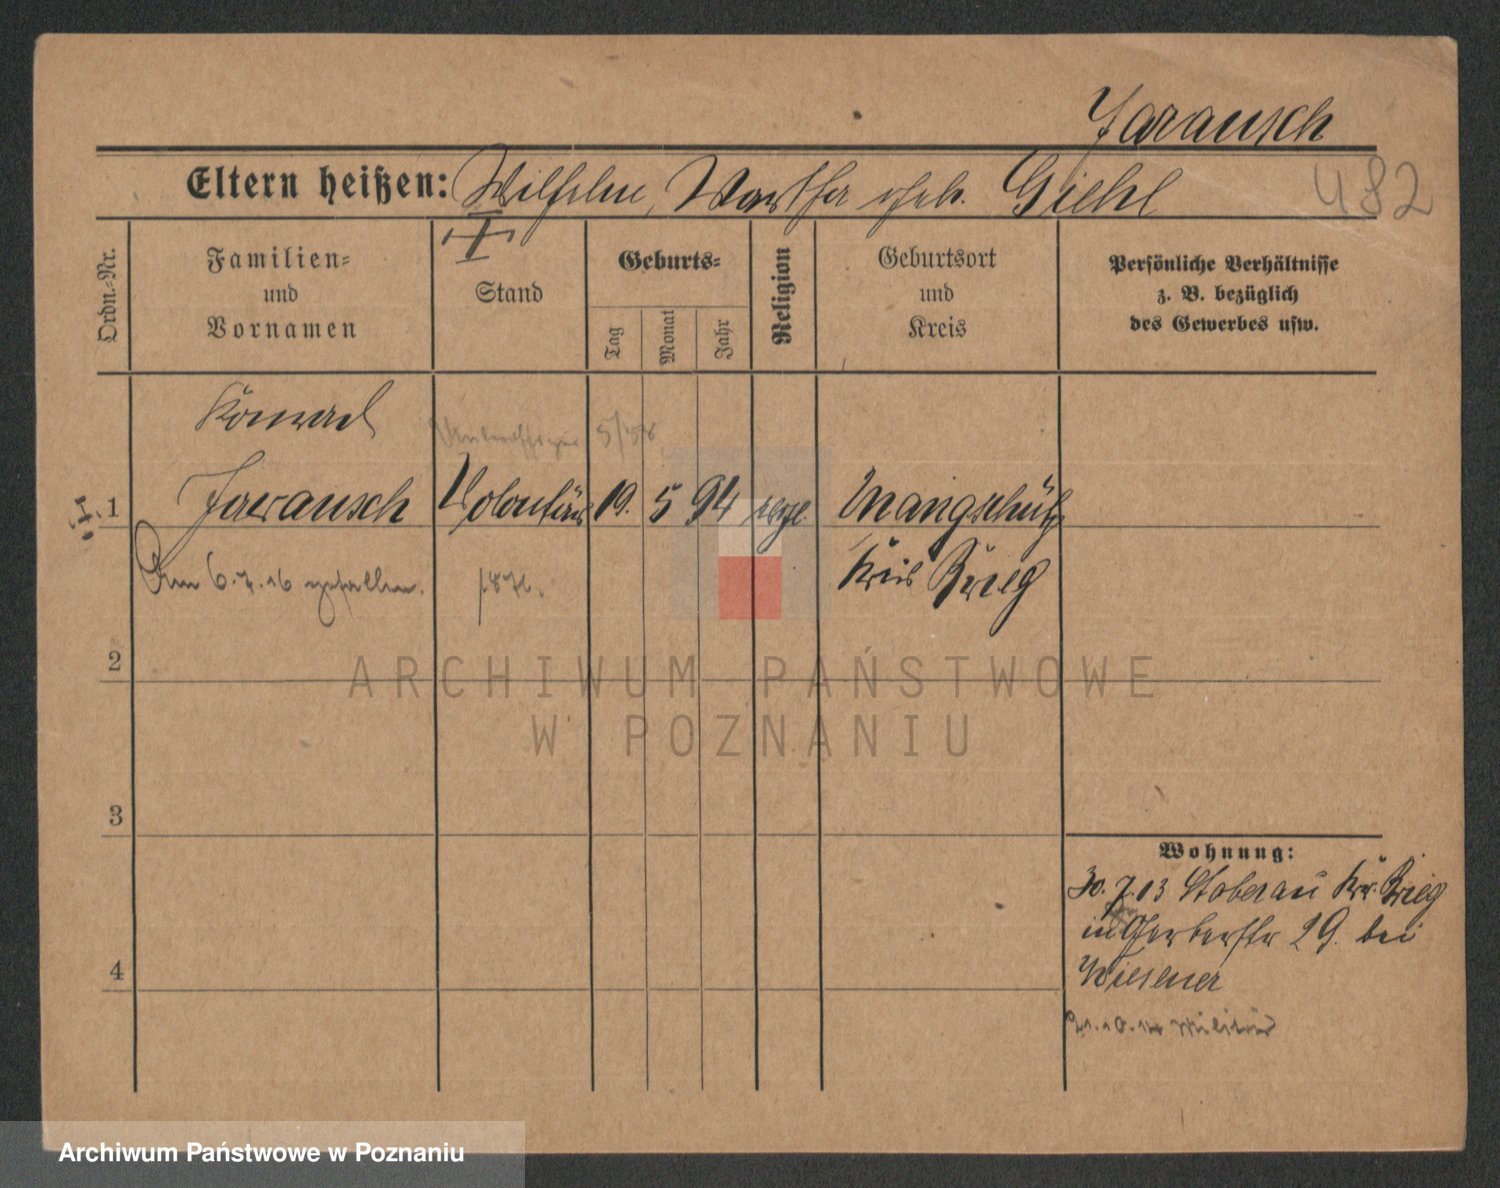 Jarausch
482
Eltern heißen: Wilhelm, Martha geb. Giehl
Ordn.-Nr.
Familien-
und
Vornamen
Stand
Geburts-
Tag
Monat
Jahr
Religion
Geburtsort
und
Kreis
Persönliche Verhältnisse
z. B. bezüglich
des Gewerbes usw.
Konrad
Unteroffizier
1 Jarausch Volontär 19. 5 94 evgl. Mangschütz
Kreis Brieg
Am 6.7.16 gefallen.
2
ARCHIWUM PAŃSTWOWE
W POZNANIU
3
4
Wohnung:
30.7.13 Stoberau Kr. Brieg
in Gerberstr 29. bei
Wiesener
21.10.14 Militär
Archiwum Państwowe w Poznaniu